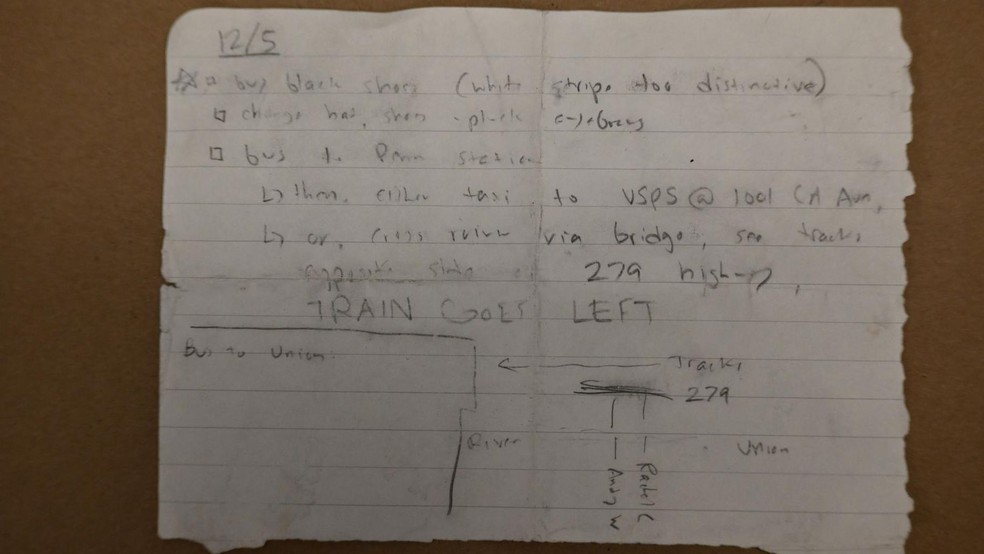 12/5
☆ □ buy black shoes (white stripe too distinctive)
□ change hat, shoes, pluck eyebrows
□ bus to Penn Station
↳ then, either taxi to USPS @ 1001 CA Ave,
↳ or, cross river via bridge, see tracks
opposite side of 279 highway,
TRAIN GOES LEFT
Bus to Union:
← Tracks
279
River
Union
Rachel C
Andy W